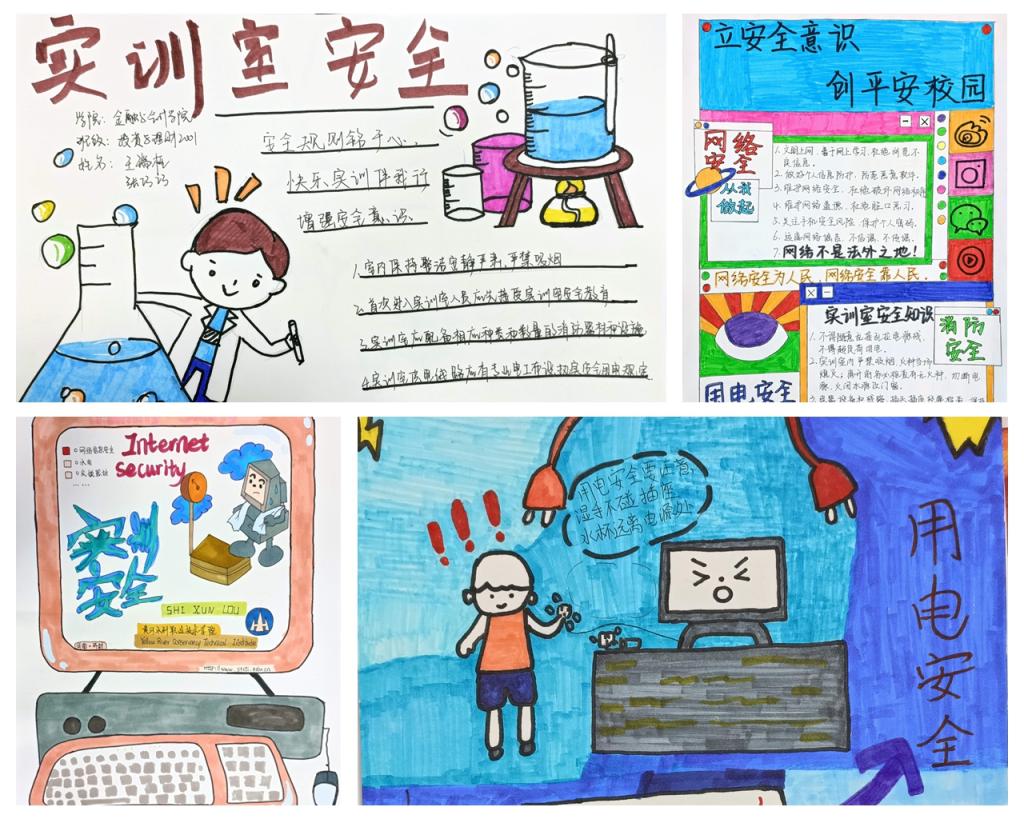 实训室安全
学院：金融与会计学院
班级：投资与理财2001
姓名：
安全规则铭于心，
快乐实训伴我行
增强安全意识
1.室内保持整洁安静严肃，严禁吸烟
2.首次进入实训室人员应接受实训室安全教育
3.实训室应配备相应种类和数量的消防器材和设施
4.实训室供电线路应有专业电工布设
立安全意识
创平安校园
网络安全
从我做起
1.文明上网，善于网上学习，拒绝浏览不良信息。
2.做好个人信息防护，防范恶意软件。
3.维护网络安全，拒绝破坏网络秩序
4.维护网络道德，
5.关注手机安全风险，保护个人密码。
6.远离网络谣言，不信谣，不传谣。
7.网络不是法外之地！
网络安全为人民，网络安全靠人民.
实训室安全知识
消防安全
1.不得随意在
2.实训室内严禁吸烟
源，关闭水源及门窗。
用电安全
Internet
security
网络信息安全
水电
实训
安全
SHI XUN LOU
黄河水利职业技术学院
Yellow River Conservancy Technical Institute
用电安全要注意，
湿手不碰插座，
水杯远离电源处
用电安全